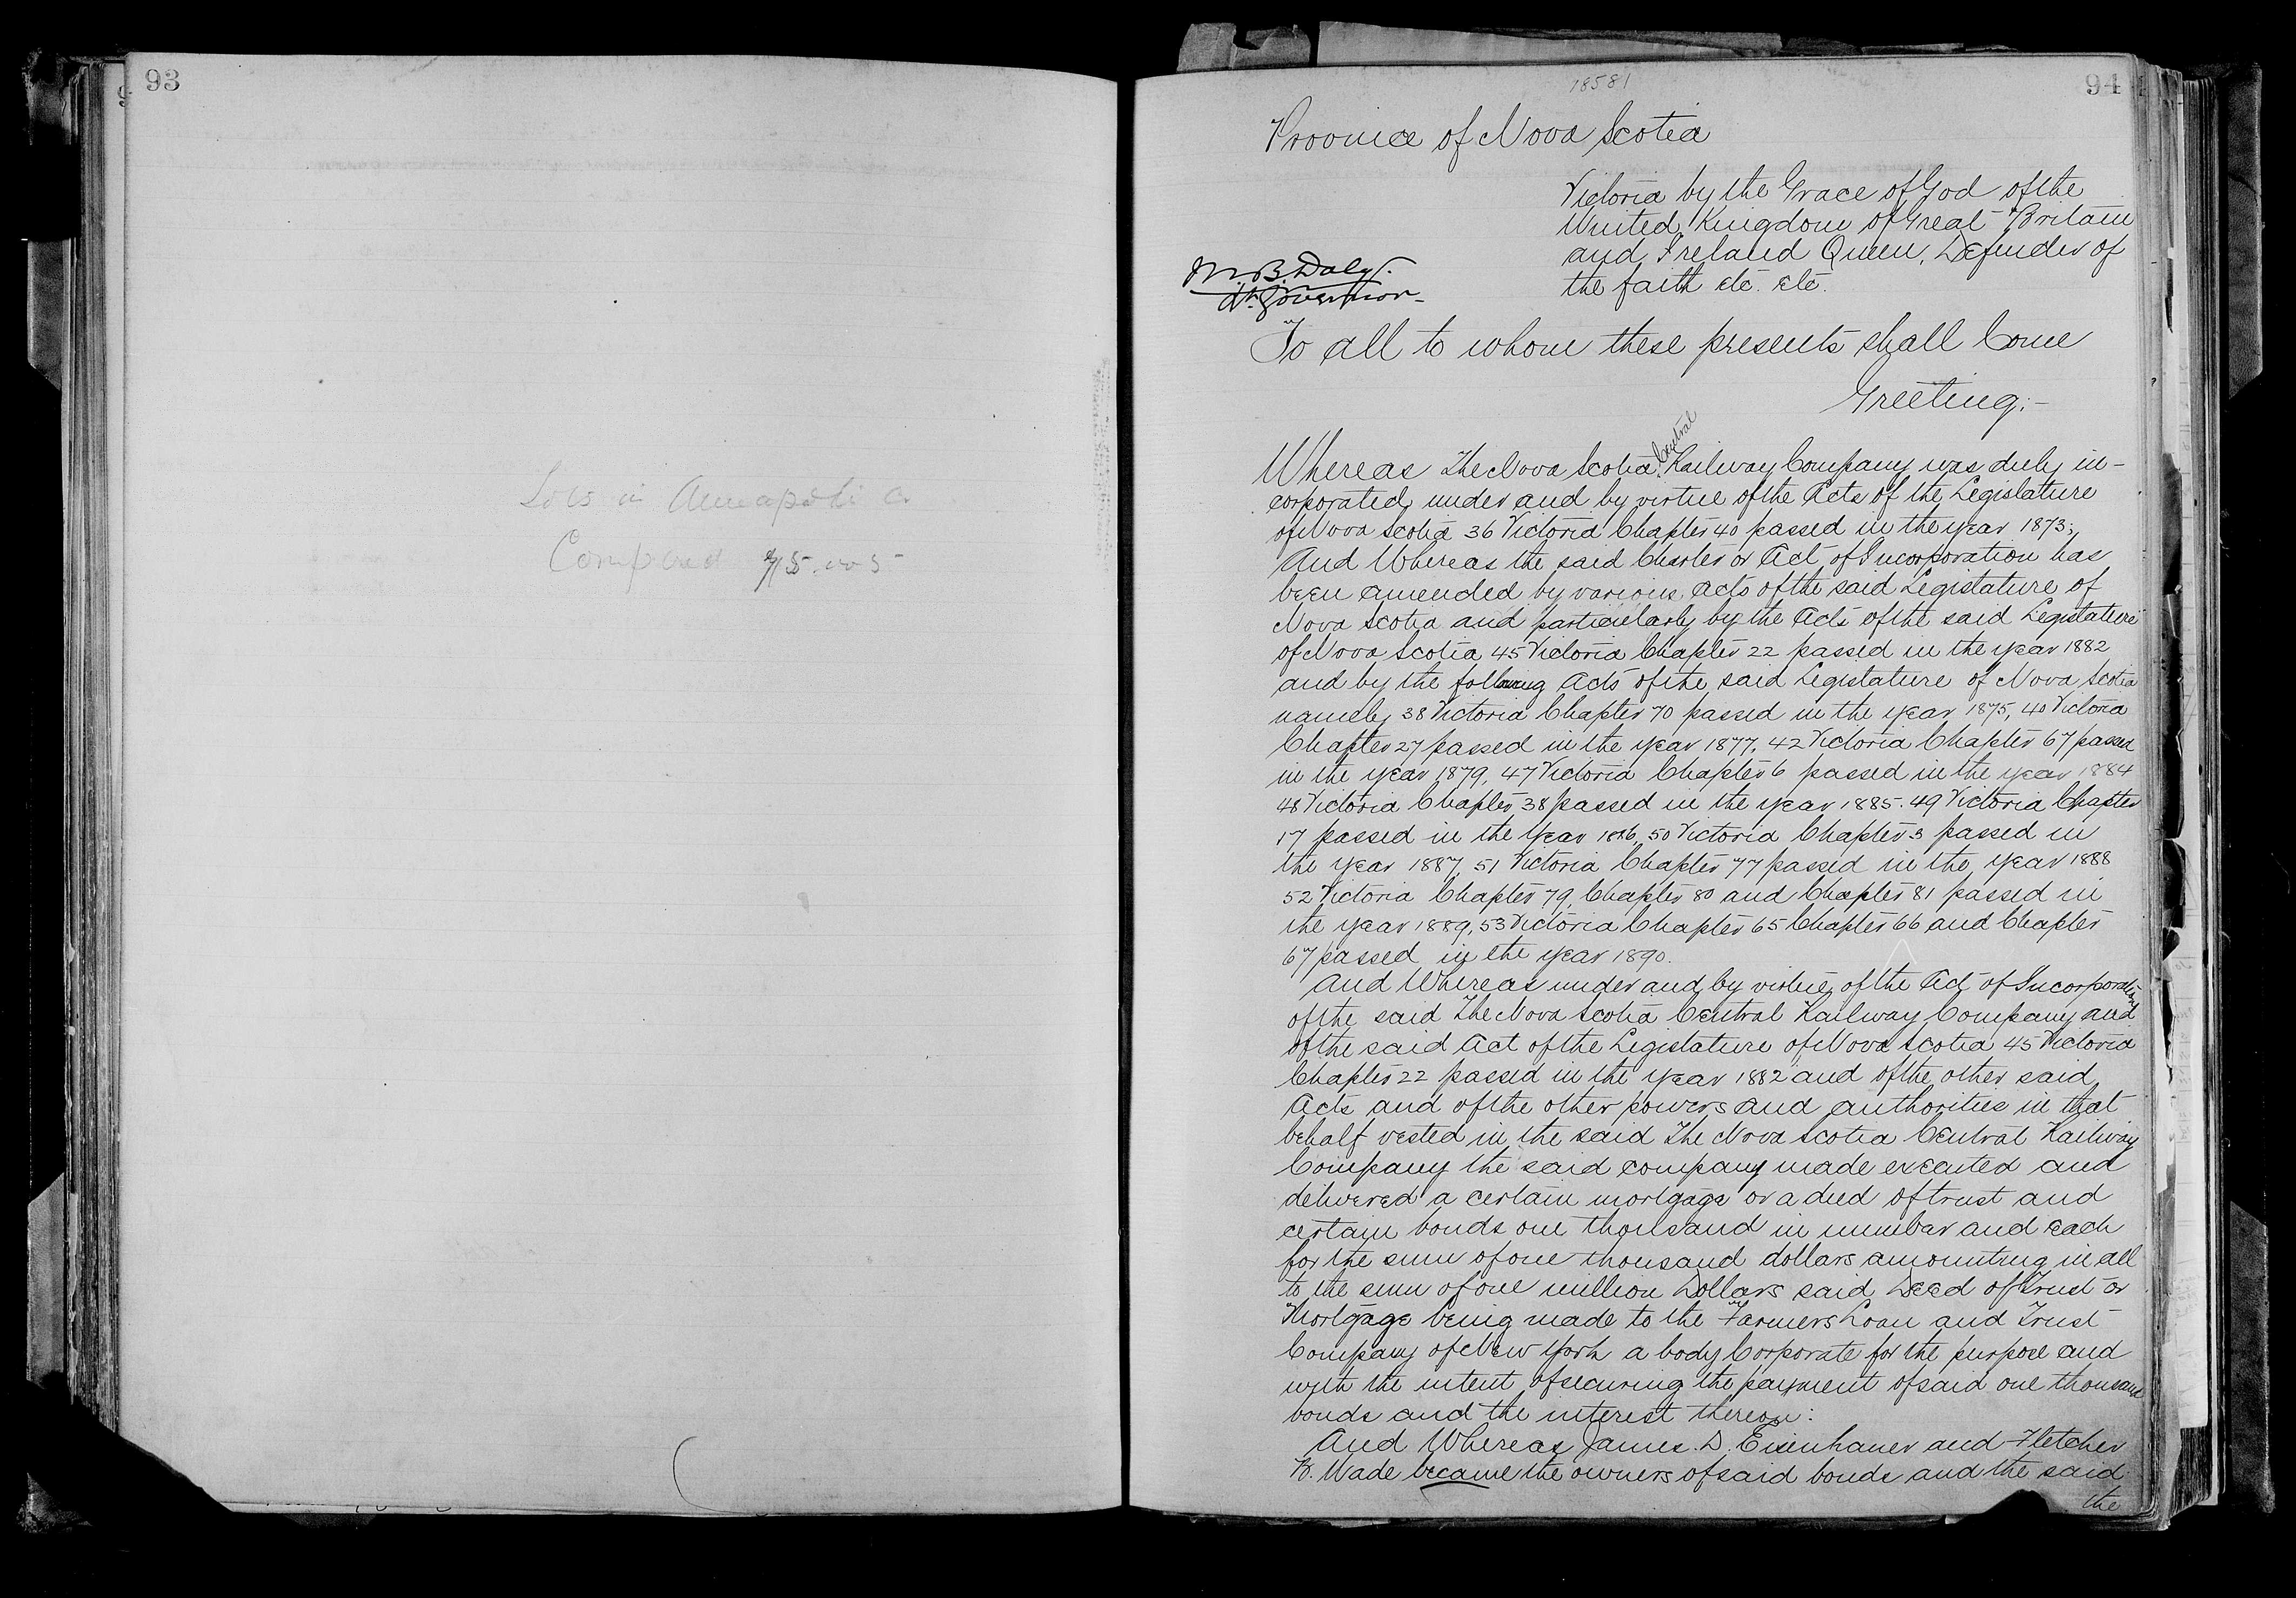 93
Lots in Annapolis Co
94
18581
Province of Nova Scotia
Victoria by the Grace of God of the
United Kingdom of Great Britain
and Ireland Queen, Defender of
the faith etc. etc.
M. B. Daly.
Lt. Governor
To all to whom these presents shall Come
Greeting:-
Whereas The Nova Scotia Central Railway Company was duly in-
corporated under and by virtue of the Acts of the Legislature
of Nova Scotia 36 Victoria Chapter 40 passed in the year 1873;
And Whereas the said Charter or Act of Incorporation has
been amended by various acts of the said Legislature of
Nova Scotia and particularly by the Acts of the said Legislature
of Nova Scotia 45 Victoria Chapter 22 passed in the year 1882
and by the following Acts of the said Legislature of Nova Scotia
namely 38 Victoria Chapter 70 passed in the year 1875, 40 Victoria
Chapter 27 passed in the year 1877, 42 Victoria Chapter 67 passed
in the year 1879, 47 Victoria Chapter 6 passed in the year 1884
48 Victoria Chapter 38 passed in the year 1885. 49 Victoria Chapter
17 passed in the Year 1886, 50 Victoria Chapter 3 passed in
the year 1887, 51 Victoria Chapter 77 passed in the year 1888
52 Victoria Chapter 79, Chapter 80 and Chapter 81 passed in
the year 1889, 53 Victoria Chapter 65 Chapter 66 and Chapter
67 passed in the year 1890.
And Whereas under and by virtue of the Act of Incorporation
of the said The Nova Scotia Central Railway Company and
of the said Act of the Legislature of Nova Scotia 45 Victoria
Chapter 22 passed in the year 1882 and of the other said
Acts and of the other powers and authorities in that
behalf vested in the said The Nova Scotia Central Railway
Company the said company made executed and
delivered a certain mortgage or a deed of trust and
certain bonds one thousand in number and each
for the sum of one thousand dollars amounting in all
to the sum of one million Dollars said Deed of Trust or
Mortgage being made to the Farmers Loan and Trust
Company of New York a body Corporate for the purpose and
with the intent of securing the payment of said one thousand
bonds and the interest thereon:
And Whereas James D. Eisenhauer and Fletcher
B. Wade became the owners of said bonds and the said
the